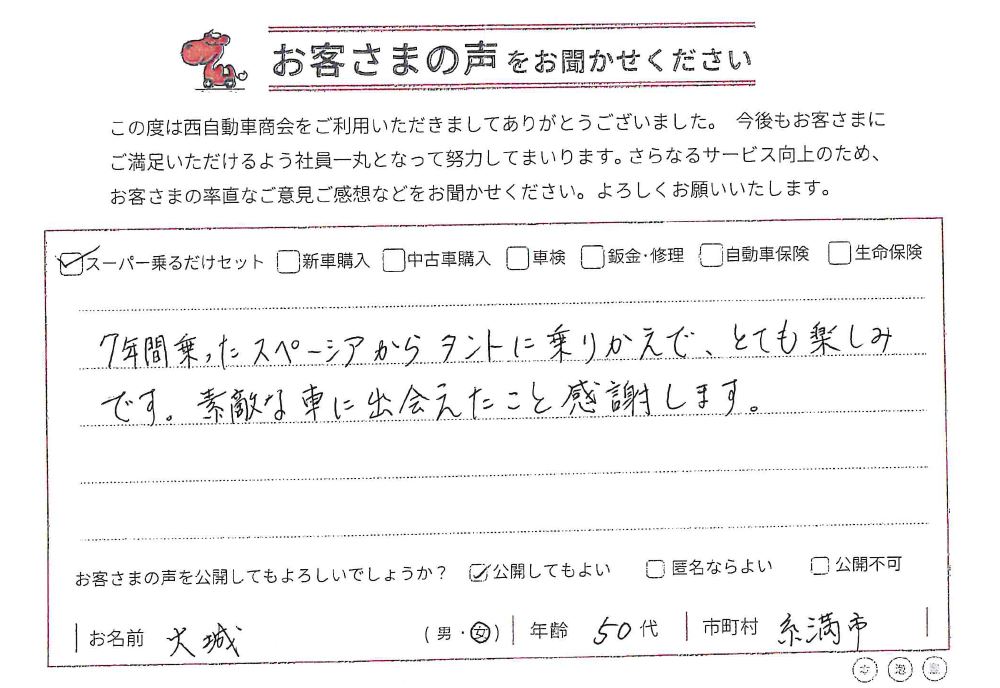 お客さまの声をお聞かせください
この度は西自動車商会をご利用いただきましてありがとうございました。 今後もお客さまに
ご満足いただけるよう社員一丸となって努力してまいります。さらなるサービス向上のため、
お客さまの率直なご意見ご感想などをお聞かせください。よろしくお願いいたします。
スーパー乗るだけセット 新車購入 中古車購入 車検 鈑金・修理 自動車保険 生命保険
7年間乗ったスペーシアからタントに乗りかえで、とても楽しみ
です。素敵な車に出会えたこと感謝します。
お客さまの声を公開してもよろしいでしょうか? 公開してもよい 匿名ならよい 公開不可
お名前 大城 (男・女) 年齢 50代 市町村 糸満市